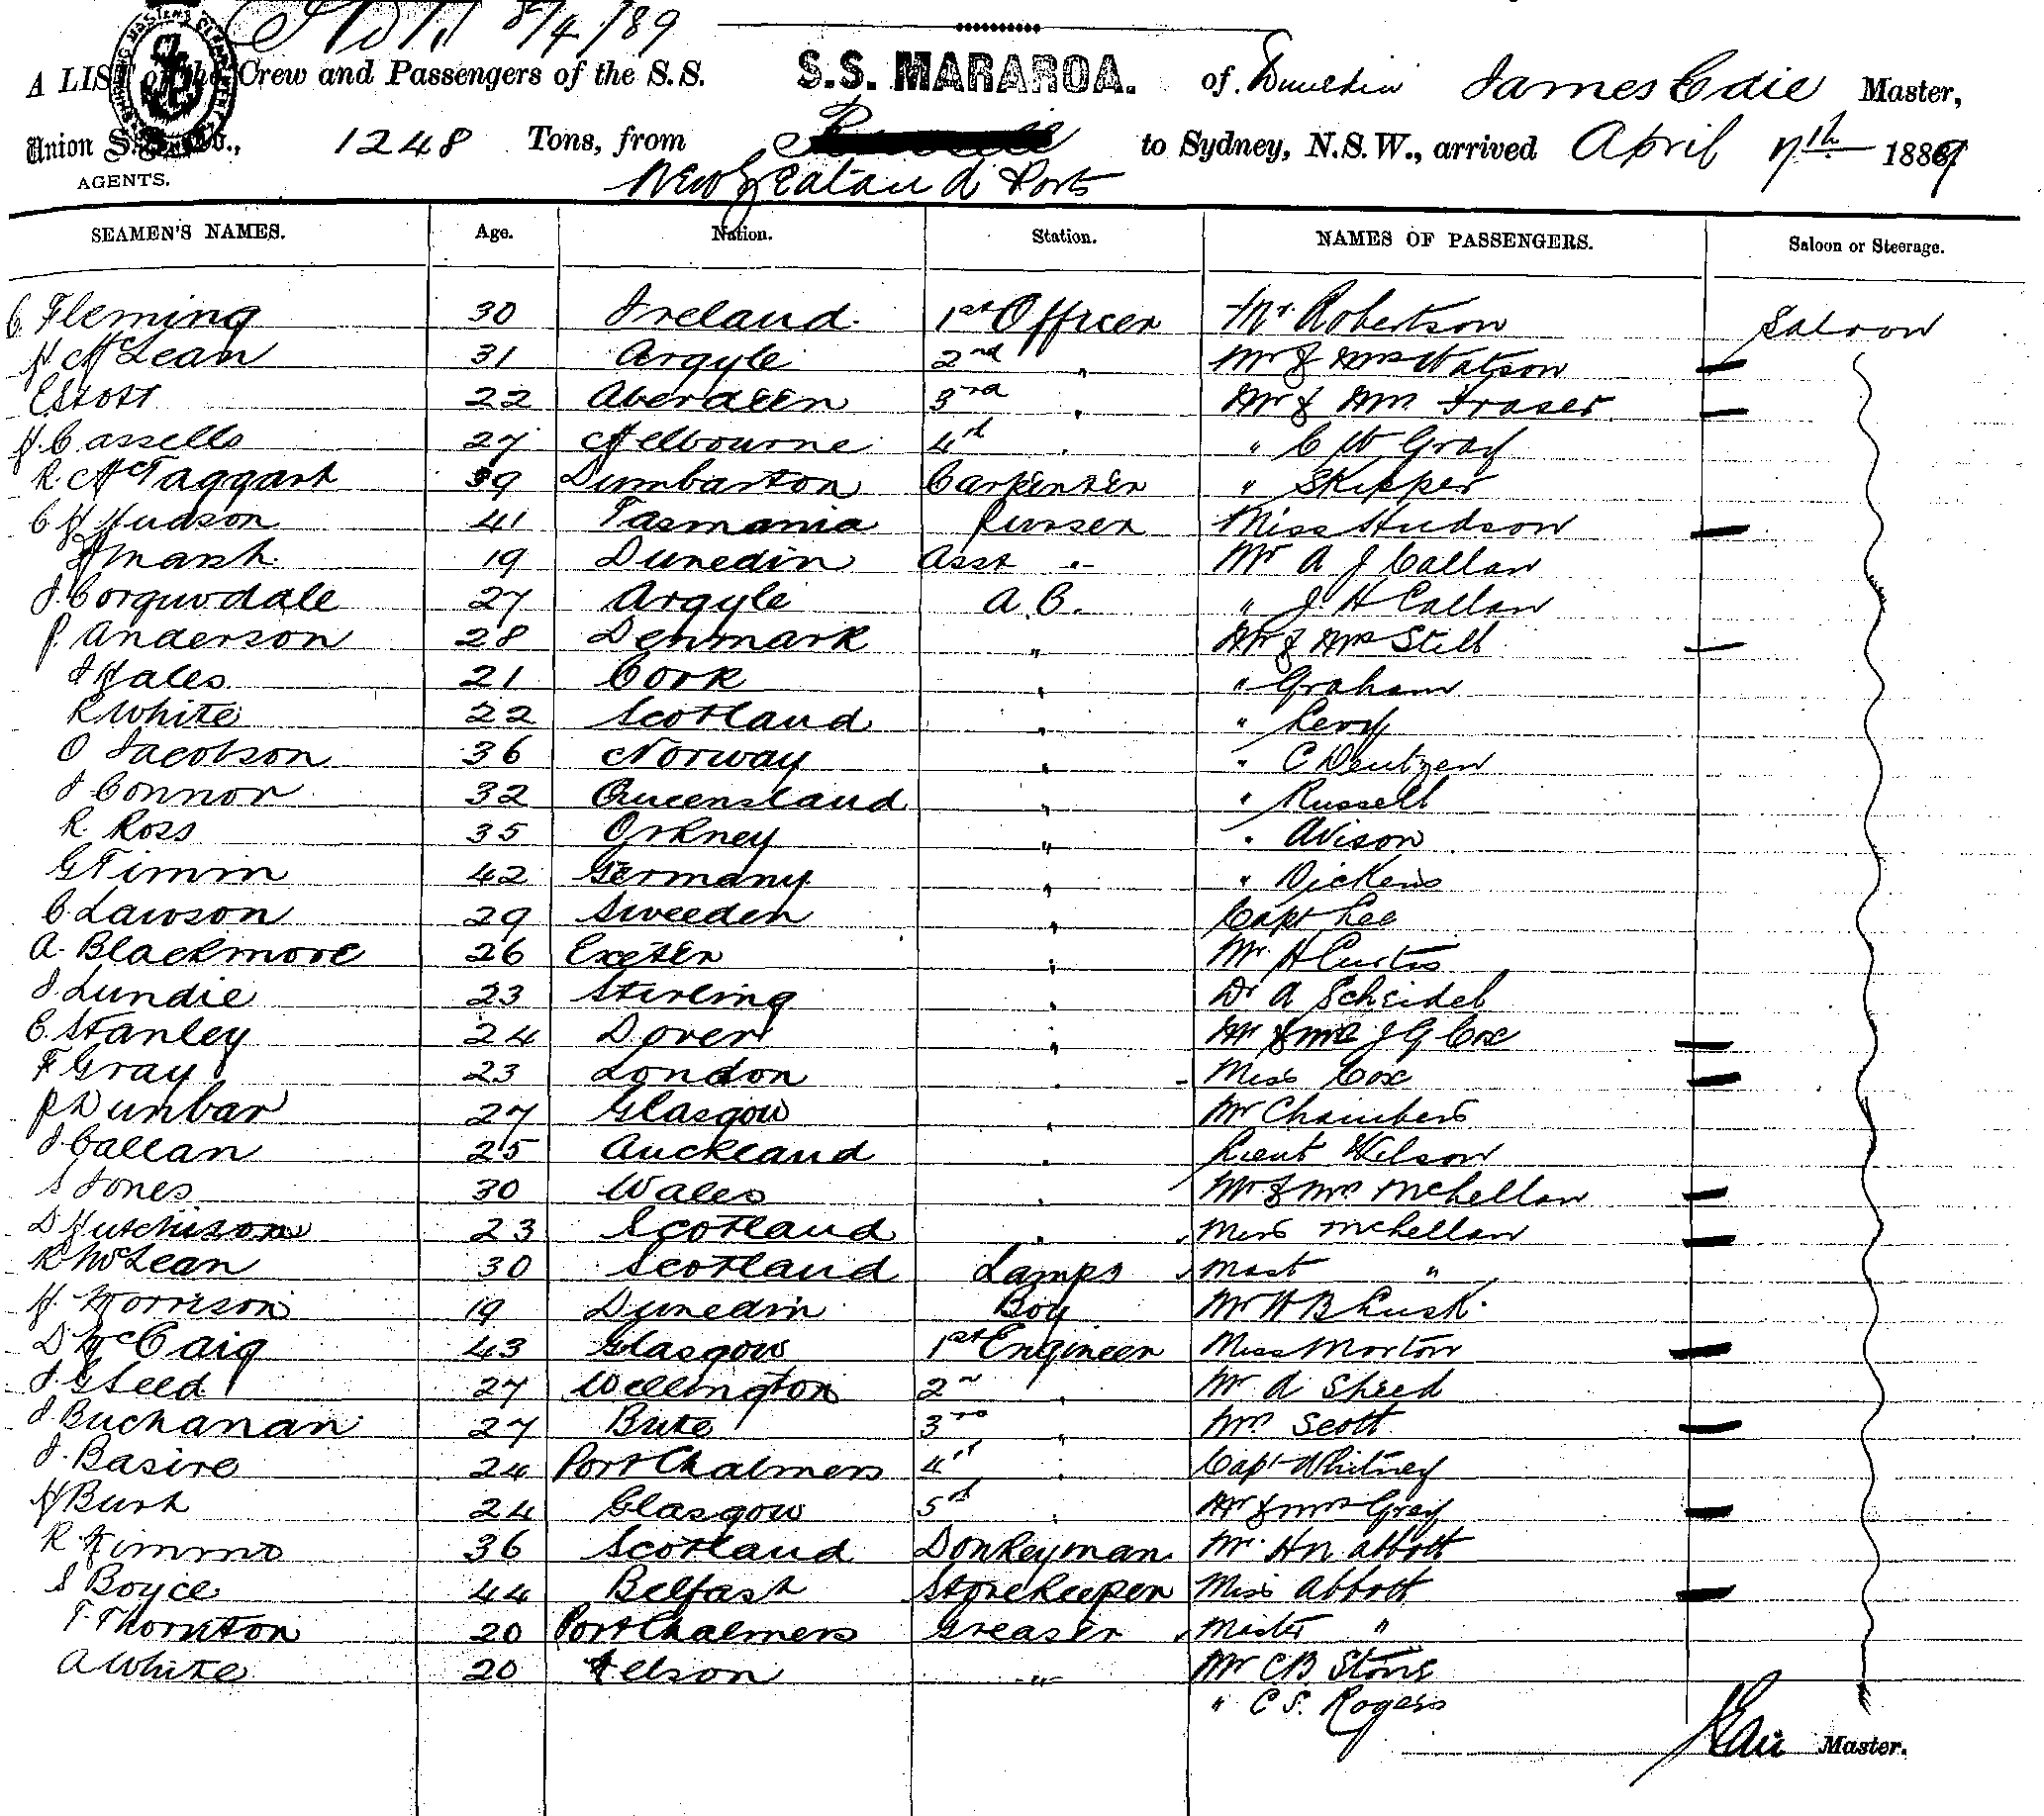 8/4/89
A LIST of the Crew and Passengers of the S.S. S.S. MARAROA. of Dunedin James Edie Master,
Union S.S. Co., 1248 Tons, from to Sydney, N.S.W., arrived April 7th 1889
AGENTS. New Zealand Ports
SEAMEN'S NAMES. Age. Nation. Station. NAMES OF PASSENGERS. Saloon or Steerage.
C. Fleming 30 Ireland 1st Officer Mr. Robertson Saloon
H. McLean 31 Argyle 2nd " Mr & Mrs Watson
E Stott 22 Aberdeen 3rd " Mr & Mrs Fraser
H. Cassells 27 Melbourne 4th " " C W Gray
R. McTaggart 39 Dumbarton Carpenter " Skipper
C H Hudson 41 Tasmania Purser Miss Hudson
Marsh 19 Dunedin Asst " Mr A J Callan
J. Corquodale 27 Argyle A.B. " J. H Callan
P. Anderson 28 Denmark " Mr & Mrs Still
J Hales 21 Cork " " Graham
R White 22 Scotland " " Levy
O Jacobson 36 Norway " " C Deutzen
J Connor 32 Queensland " " Russell
R. Ross 35 Orkney " " Avison
G Timm 42 Germany " " Dickens
C. Lawson 29 Sweeden " Capt Lee
A. Blackmore 26 Exeter " Mr. H Curtis
J. Lundie 23 Stirling " Dr A Scheidel
E. Stanley 24 Dover " Mr & Mrs J G Cox
F Gray 23 London " Miss Cox
P Dunbar 27 Glasgow " Mr Chambers
J Callan 25 Auckland " Lieut Wilson
S Jones 30 Wales " Mr & Mrs McLellan
D Hutchison 23 Scotland " Miss McLellan
R McLean 30 Scotland Lamps Mast "
H. Morrison 19 Dunedin Boy Mr H B Lusk
D. McCaig 43 Glasgow 1st Engineer Miss Morton
J. G Leed 27 Wellington 2nd " Mr A Sheed
J Buchanan 27 Bute 3rd " Mrs Scott
J. Basire 24 Port Chalmers 4th " Capt Whitney
H Burt 24 Glasgow 5th " Mr & Mrs Gray
R Nimmo 36 Scotland Donkeyman Mr. H N Abbott
S Boyce 44 Belfast Storekeeper Miss Abbott
T. Thornton 20 Port Chalmers Greaser Master "
A White 20 Nelson " Mr C B Stone
" C S. Rogers
J Edie Master.